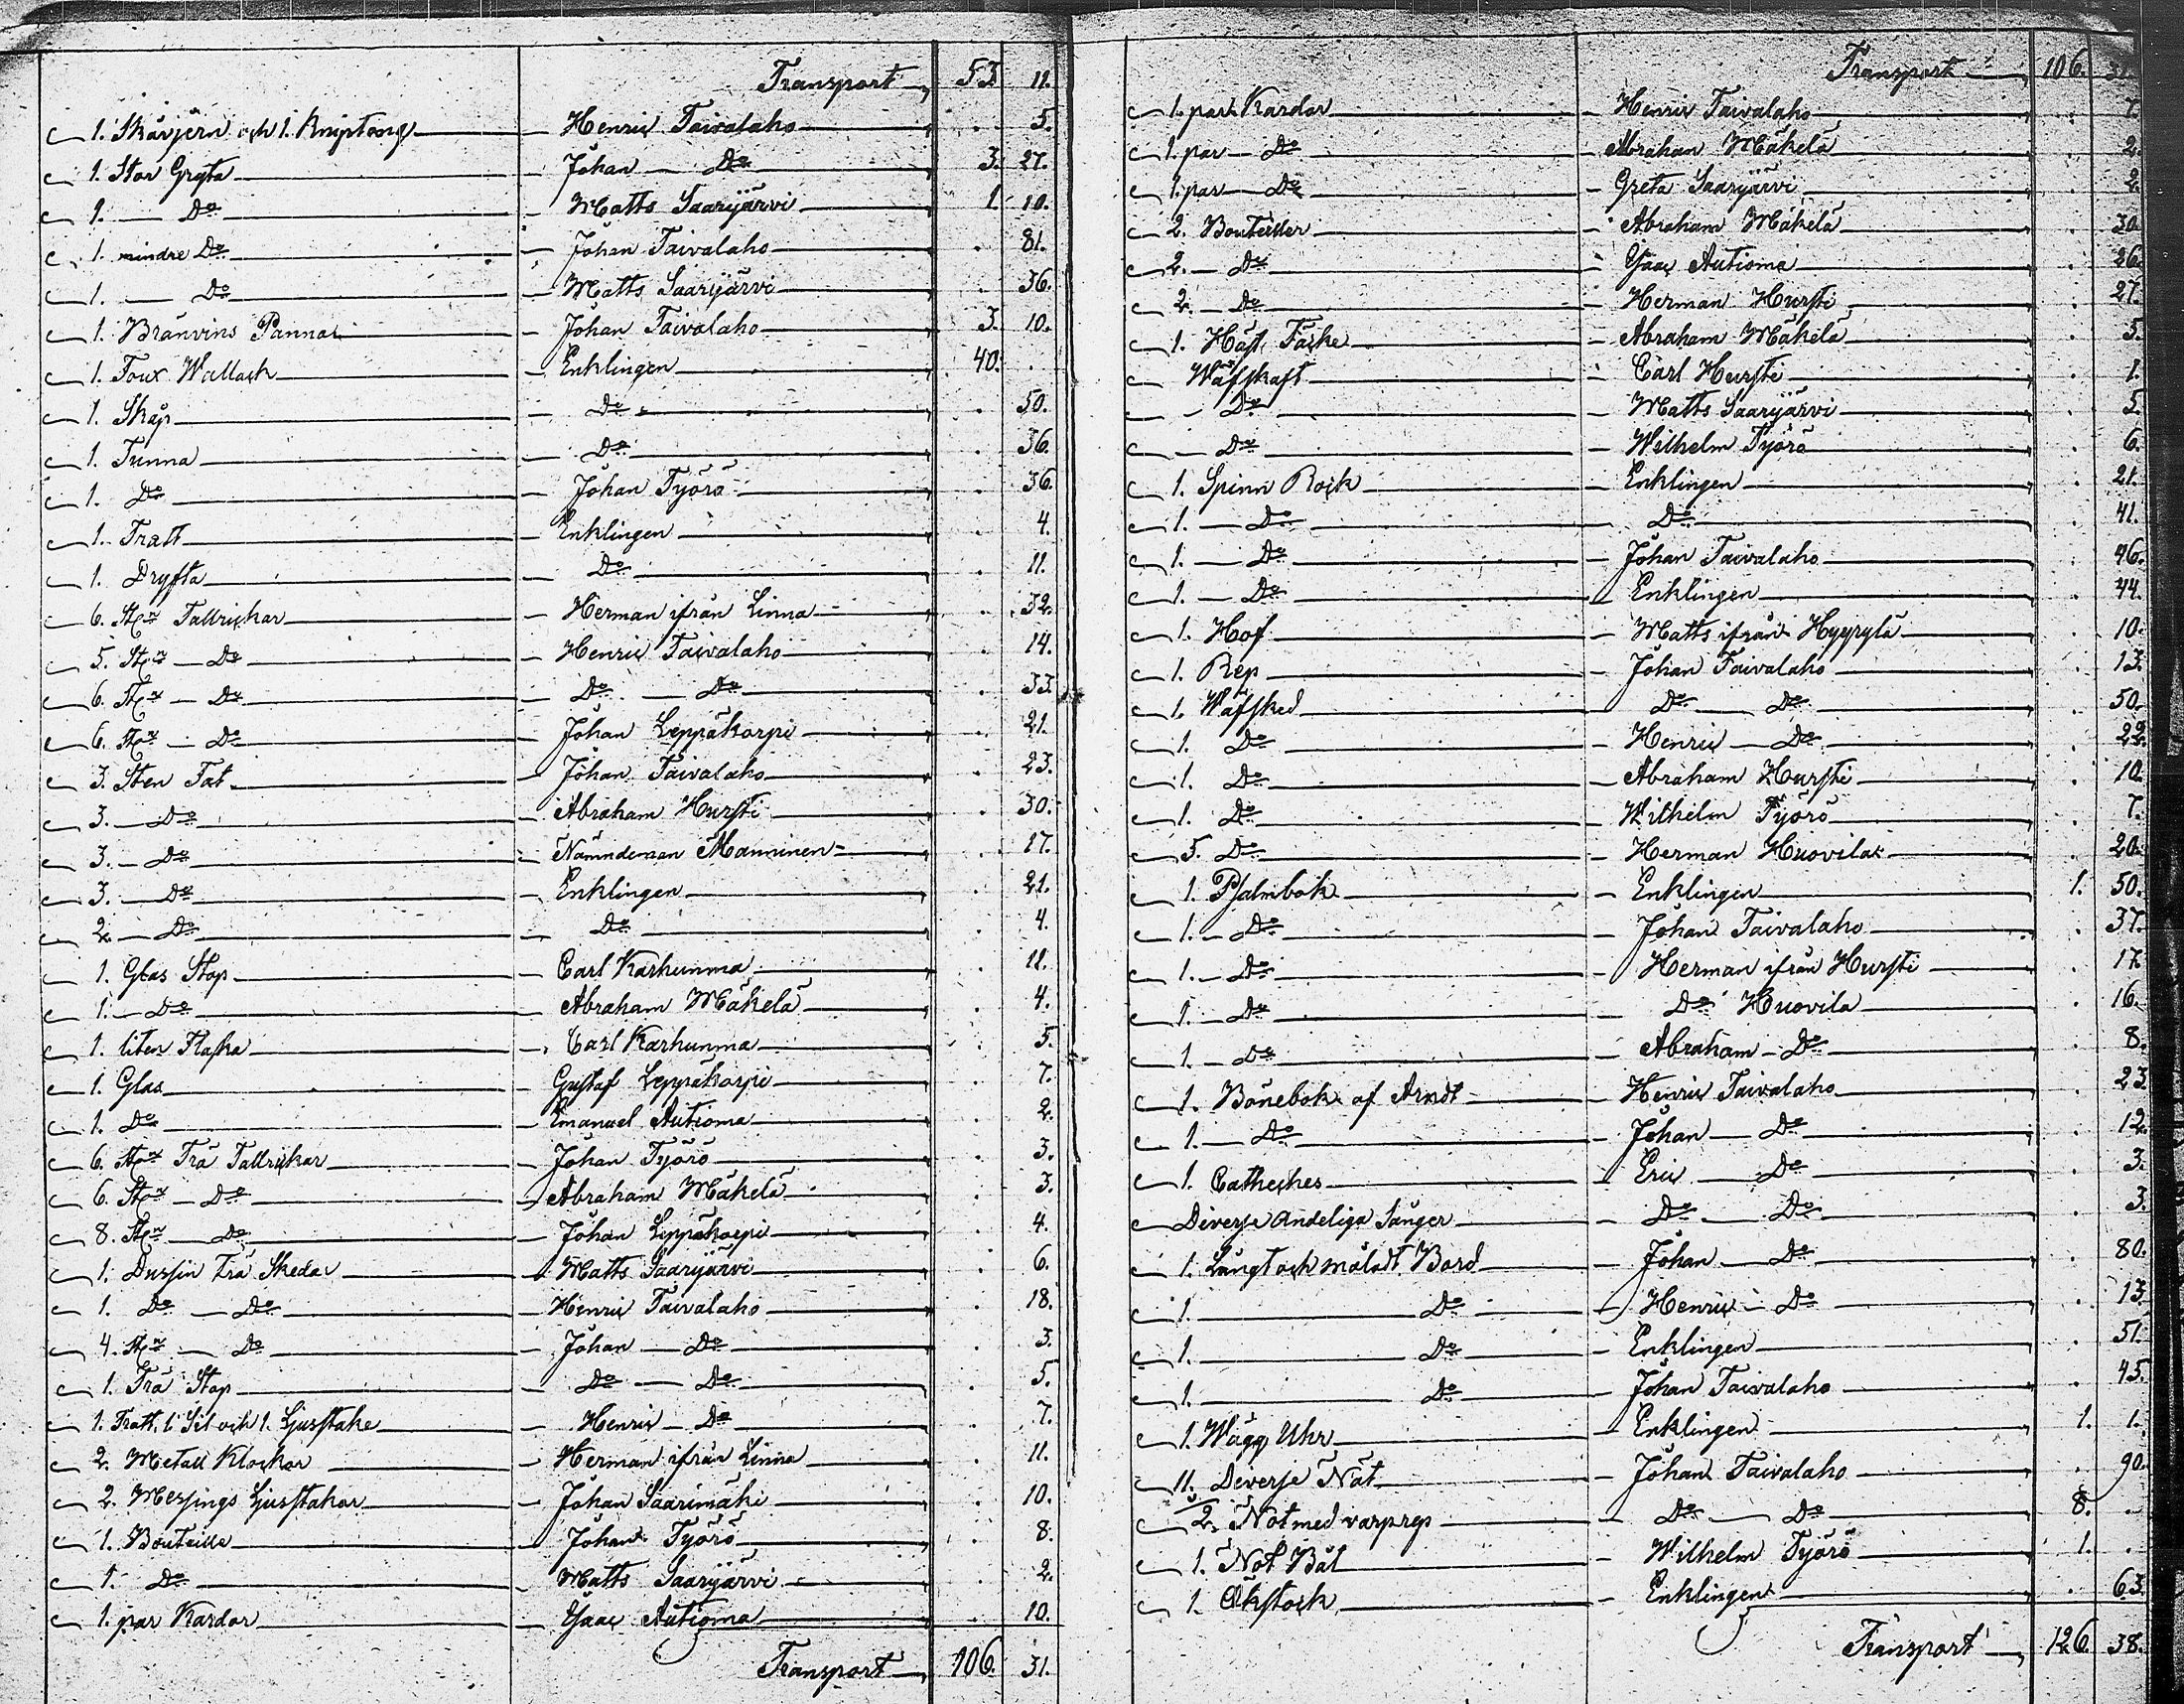 Transport 53. 11.
1. Skärjern och 1. Kniptång Henric Taivalaho . 5.
1. Stor Gryta Johan Do 3. 27.
1. Do Matts Saarijärvi 1. 10.
1. mindre Do Johan Taivalaho . 81.
1. Do Matts Saarijärvi . 36.
1. Bränvins Panna Johan Taivalaho 3. 10.
1. Foux Wallack Enklingen 40. .
1. Skåp Do . 50.
1. Tunna Do . 36.
1. Do Johan Työrö . 36.
1. Tratt Enklingen . 4.
1. Dryfta Do . 11.
6. Stn Tallrickar Herman ifrån Linna . 32.
5. Stn Do Henric Taivalaho . 14.
6. Stn Do Do Do . 33.
6. Stn Do Johan Leppäkorpi . 21.
3. Sten Fat Johan Taivalaho . 23.
3. Do Abraham Hursti . 30.
3. Do Nämndeman Manninen . 17.
3. Do Enklingen . 21.
2. Do Do . 4.
1. Glas Stop Carl Karhunma . 11.
1. Do Abraham Mäkelä . 4.
1. liten Flaska Carl Karhunma . 5.
1. Glas Gustaf Leppäkorpi . 7.
1. Do Emanuel Autioma . 2.
6. Stn Trä Tallrickar Johan Työrö . 3.
6. Stn Do Abraham Mäkelä . 3.
8. Stn Do Johan Leppäkorpi . 4.
1. Dussin Trä Skedar Matts Saarijärvi . 6.
1. Do Do Henric Taivalaho . 18.
4. Stn Do Johan Do . 3.
1. Trä Stop Do Do . 5.
1. Tratt, 1 Sil och 1. Ljusstake Henric Do . 7.
2. Metall Klockor Herman ifrån Linna . 11.
2. Messings Ljusstakar Johan Saarimäki . 10.
1. Bouteille Johan Työrö . 8.
1. Do Matts Saarijärvi . 2.
1. par Kardor Isaac Autioma . 10.
Transport 106. 31.
Transport 106. 31.
1. par Kardor Henric Taivalaho . 7.
1. par Do Abraham Mäkelä . 2.
1. par Do Greta Saarijärvi . 2.
2. Bouteiller Abraham Mäkelä . 30.
2. Do Isaac Autioma . 26.
2. Do Herman Hursti . 27.
1. Häst Täcke Abraham Mäkelä . 5.
Wäfskaft Carl Hursti . 1.
Do Matts Saarijärvi . 5.
Do Wilhelm Työrö . 6.
1. Spinn Rock Enklingen . 21.
1. Do Do . 41.
1. Do Johan Taivalaho . 46.
1. Do Enklingen . 44.
1. Hof Matts ifrån Hyyrylä . 10.
1. Rep Johan Taivalaho . 13.
1. Wäfsked Do Do . 50.
1. Do Henric Do . 22.
1. Do Abraham Hursti . 10.
1. Do Wilhelm Työrö . 7.
5. Do Herman Huovila . 20.
1. Psalmbok Enklingen 1. 50.
1. Do Johan Taivalaho . 37.
1. Do Herman ifrån Hursti . 17.
1. Do Do Huovila . 16.
1. Do Abraham Do . 8.
1. Bönebok af Arndt Henric Taivalaho . 23.
1. Do Johan Do . 12.
1. Catheches Eric Do . 3.
Diverse andeliga Sånger Do Do . 3.
1. Långt och måladt Bord Johan Do . 80.
1. Do Henric Do . 13.
1. Do Enklingen . 51.
1. Do Johan Taivalaho . 45.
1. Wägg Uhr Enklingen 1. 1.
11. Deverse Nät Johan Taivalaho . 90.
1/2. Not med varprep Do Do 8. .
1. Not Båt Wilhelm Työrö 1. .
1. Ökstock Enklingen . 63.
Transport 126. 38.